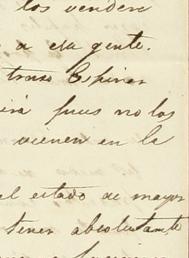 los vendere
a esa gente.
trajo Espinar
irá pues no los
vienen en la
el estado de mayor
tener absolutamte